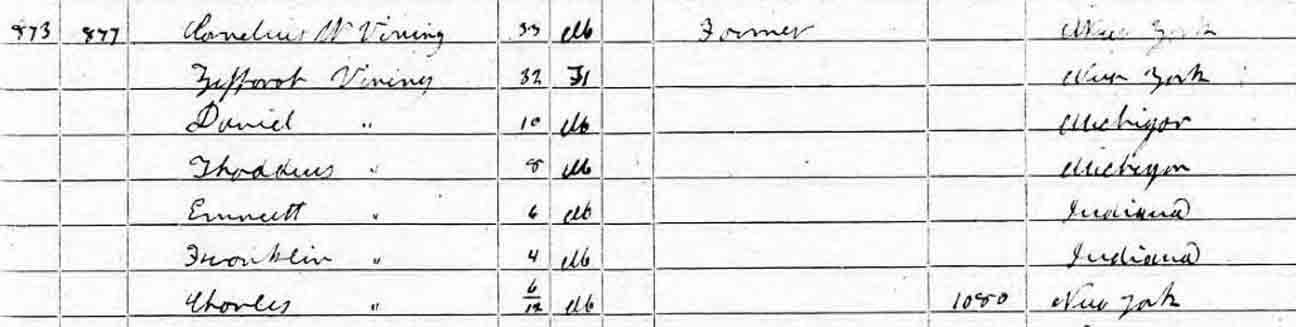 873 877 Cornelius W Vining 33 M Farmer New York
Vining 32 F New York
Daniel " 10 M Michigan
Thaddeus " 8 M Michigan
Emmett " 6 M Indiana
Franklin " 4 M Indiana
Charles " 6/12 M 1080 New York